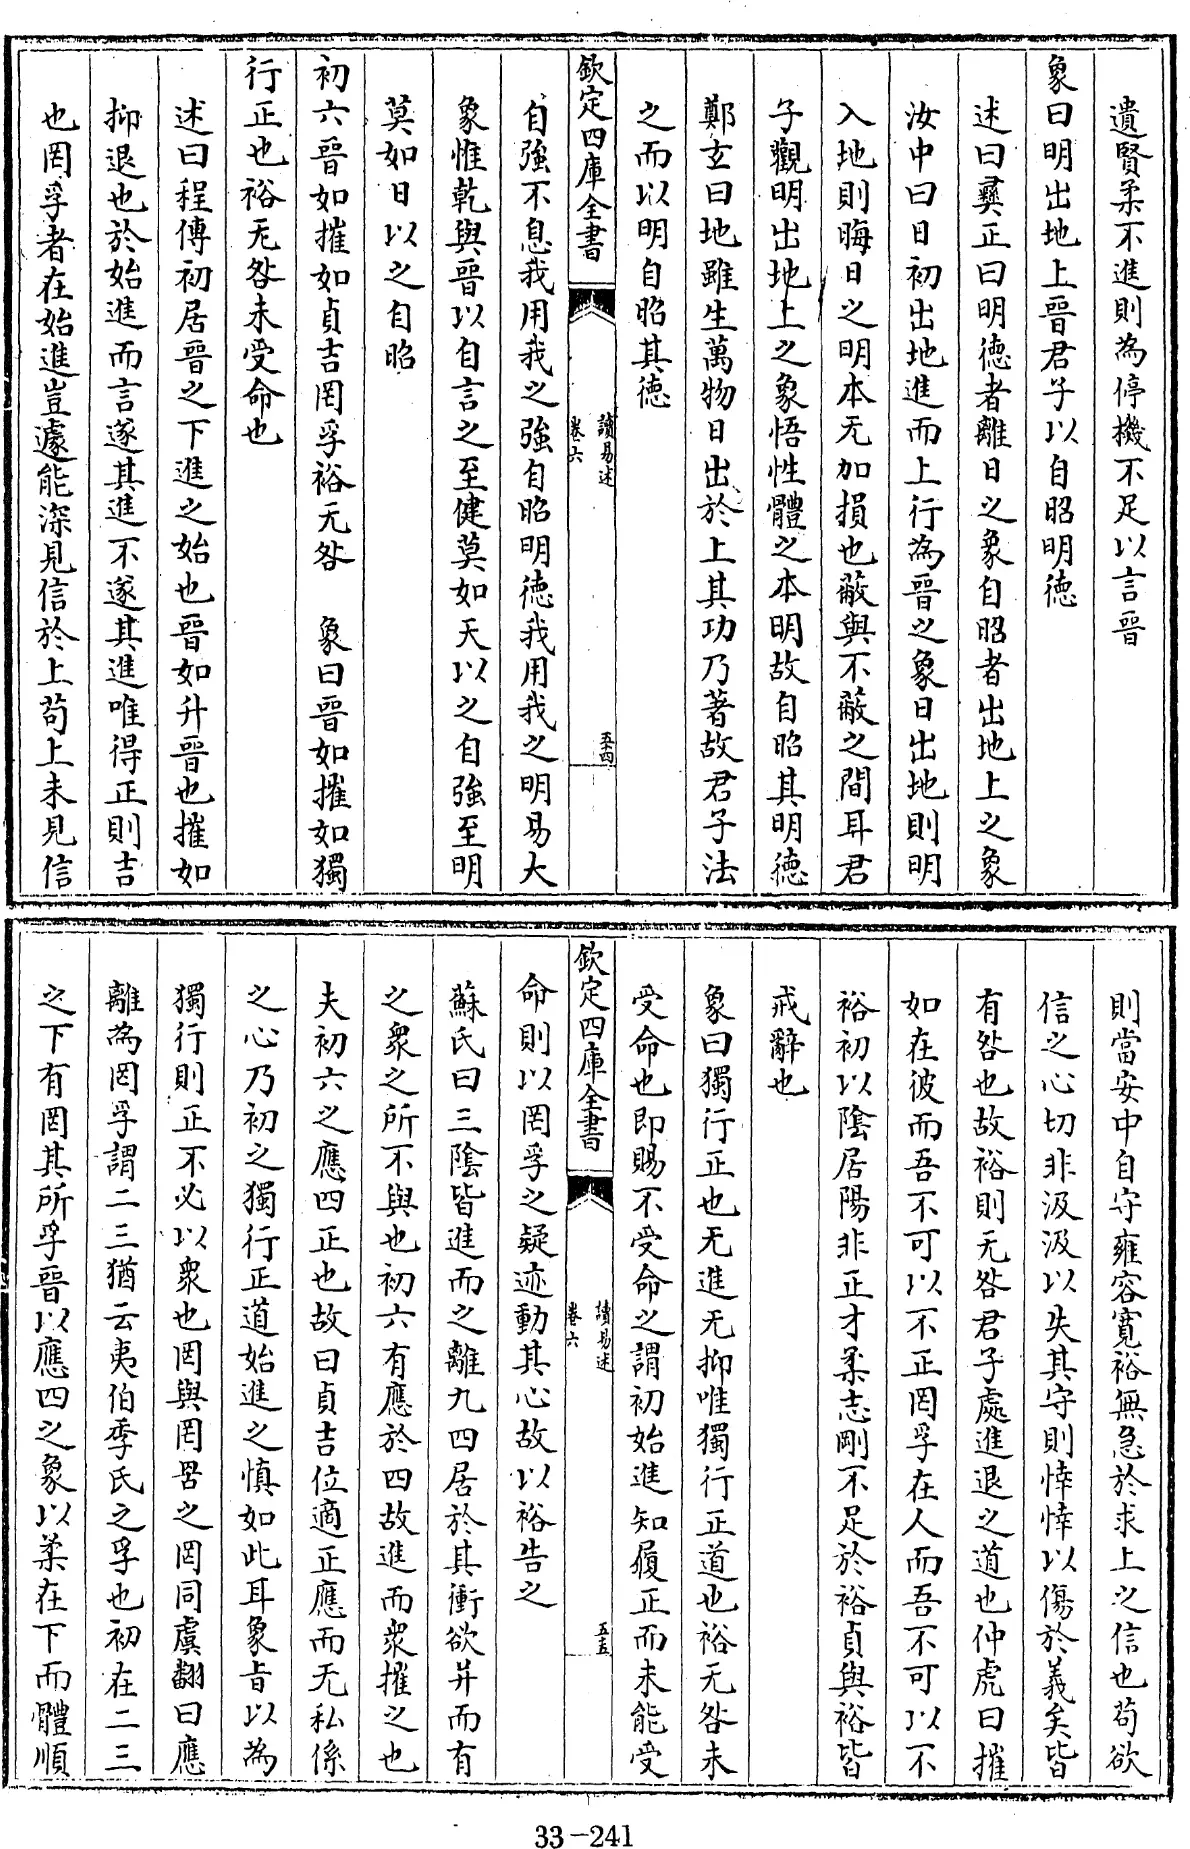 遺賢柔不進則為停機不足以言晉
象曰明出地上晉君子以自昭明德
述曰彛正曰明德者離日之象自昭者出地上之象
汝中曰日初出地進而上行為晉之象日出地則明
入地則晦日之明本无加損也蔽與不蔽之間耳君
子觀明出地上之象悟性體之本明故自昭其明德
鄭玄曰地雖生萬物日出於上其功乃著故君子法
之而以明自昭其德
欽定四庫全書
讀易述
卷六
五十四
自強不息我用我之強自昭明德我用我之明易大
象惟乾與晉以自言之至健莫如天以之自強至明
莫如日以之自昭
初六晉如摧如貞吉罔孚裕无咎 象曰晉如摧如獨
行正也裕无咎未受命也
述曰程傳初居晉之下進之始也晉如升晉也摧如
抑退也於始進而言遂其進不遂其進唯得正則吉
也罔孚者在始進豈遽能深見信於上茍上未見信
則當安中自守雍容寛裕無急於求上之信也茍欲
信之心切非汲汲以失其守則悻悻以傷於義矣皆
有咎也故裕則无咎君子處進退之道也仲虎曰摧
如在彼而吾不可以不正罔孚在人而吾不可以不
裕初以陰居陽非正才柔志剛不足於裕貞與裕皆
戒辭也
象曰獨行正也无進无抑唯獨行正道也裕无咎未
受命也即賜不受命之謂初始進知履正而未能受
欽定四庫全書
讀易述
卷六
五十五
命則以罔孚之疑迹動其心故以裕告之
蘇氏曰三陰皆進而之離九四居於其衝欲并而有
之衆之所不與也初六有應於四故進而衆摧之也
夫初六之應四正也故曰貞吉位適正應而无私係
之心乃初之獨行正道始進之慎如此耳象旨以為
獨行則正不必以衆也罔與罔罟之罔同虞翻曰應
離為罔孚謂二三猶云夷伯季氏之孚也初在二三
之下有罔其所孚晉以應四之象以柔在下而體順
33-241